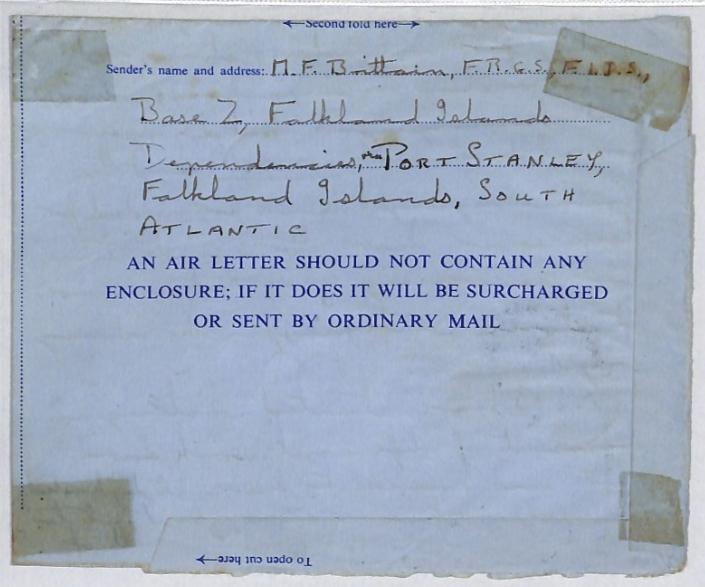 ←Second fold here→
Sender's name and address: M. F. Brittain, F.R.G.S., F.I.D.S.,
Base Z, Falkland Islands
Dependencies, via PORT STANLEY,
Falkland Islands, SOUTH
ATLANTIC
AN AIR LETTER SHOULD NOT CONTAIN ANY
ENCLOSURE; IF IT DOES IT WILL BE SURCHARGED
OR SENT BY ORDINARY MAIL
To open cut here→